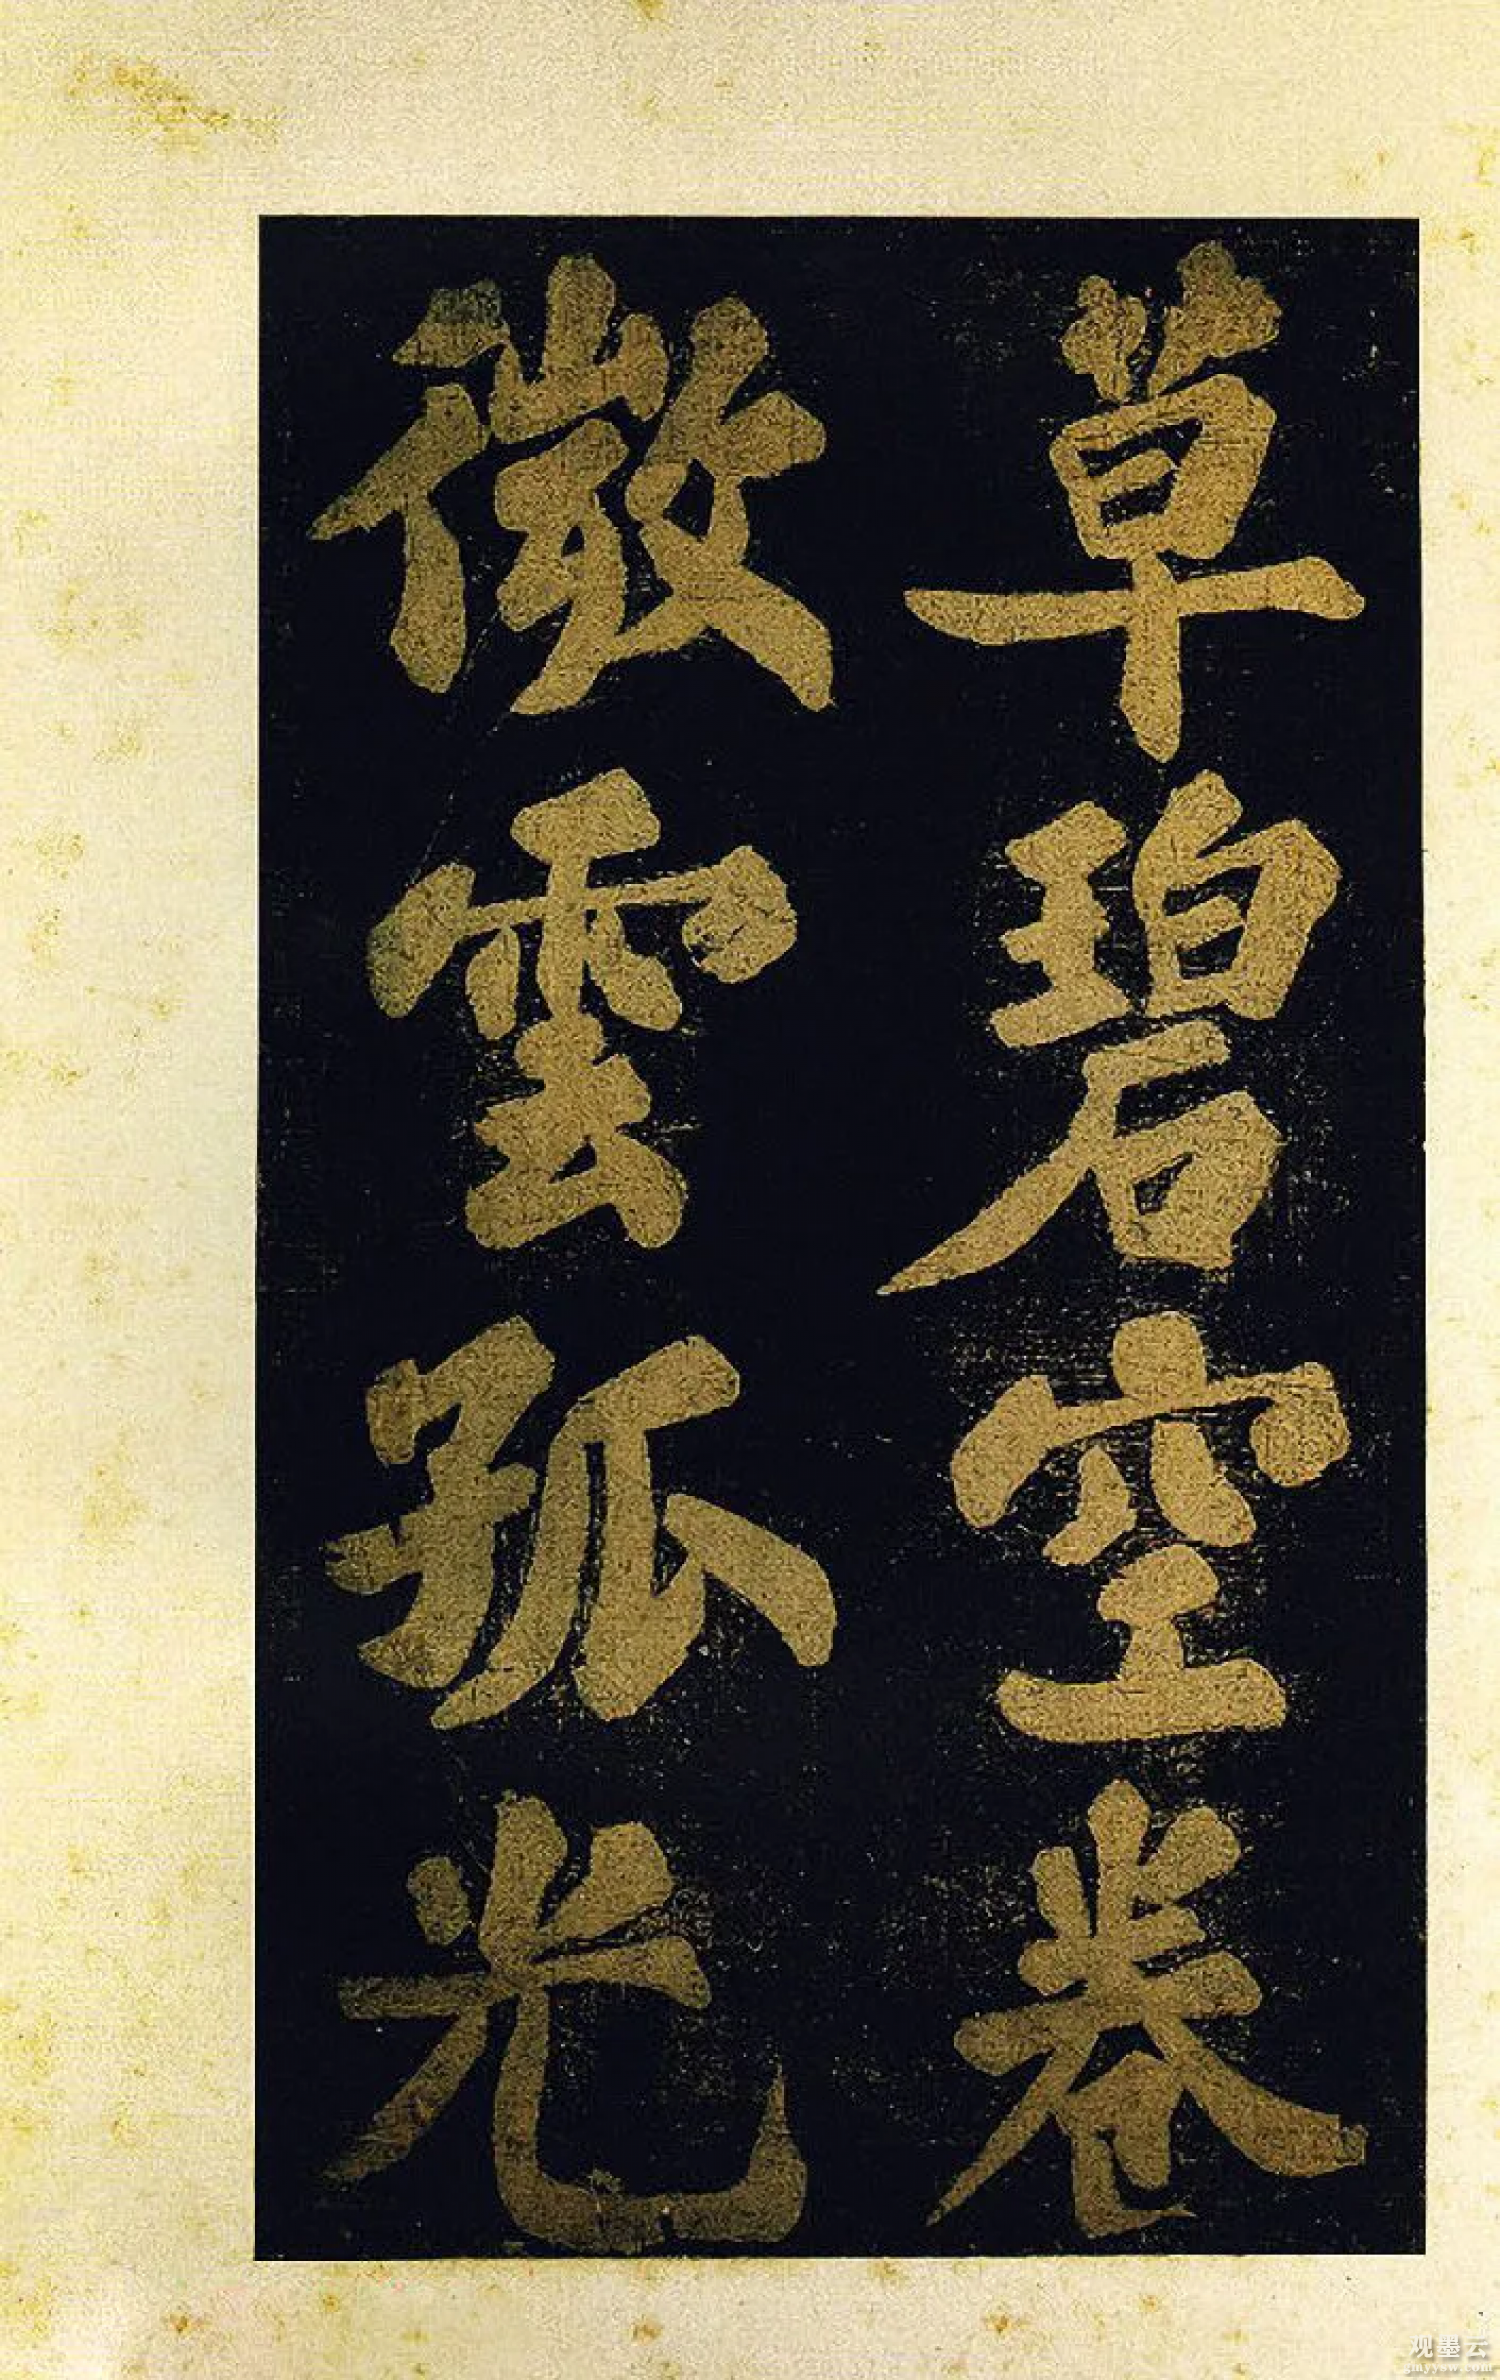 草碧空卷
微雲孤光
观墨云
gmyysw.com